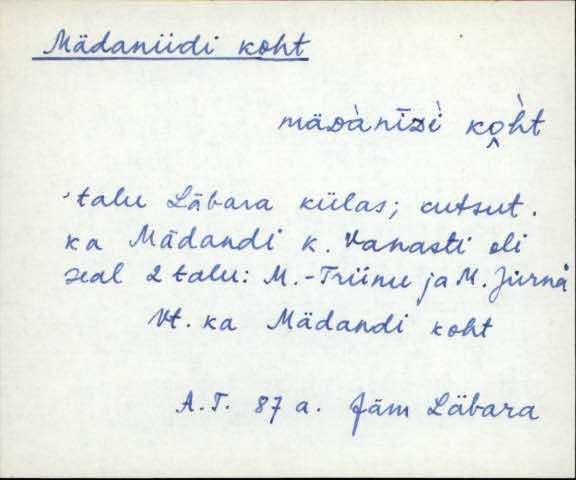 Mädaniidi koht
mäᴅànīᴢì ko͔h̀t
talu Läbara külas; kutsut.
ka Mädandi k. Vanasti oli
seal 2 talu: M.-Triinu ja M. Jürna
Vt. ka Mädandi koht
A.T. 87 a. Jäm Läbara